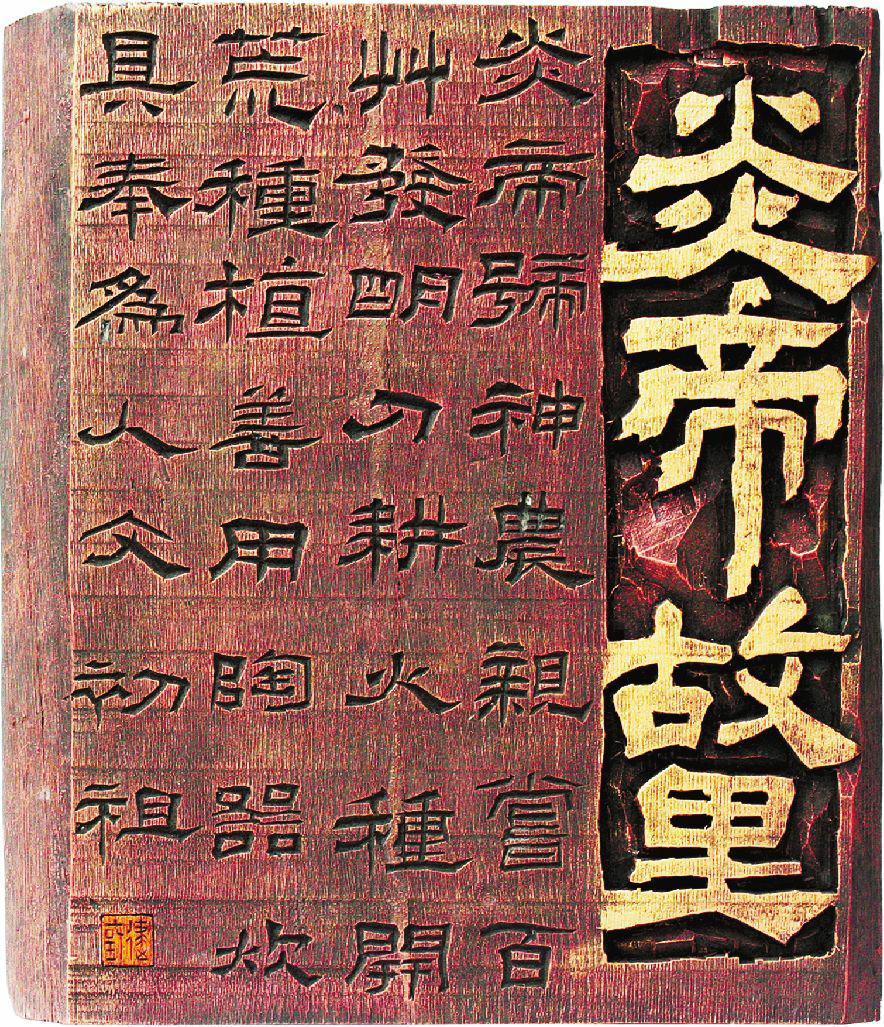 炎帝故里
炎帝號神農親嘗百
艸發明刀耕火種開
荒種植善用陶器炊
具奉為人文初祖